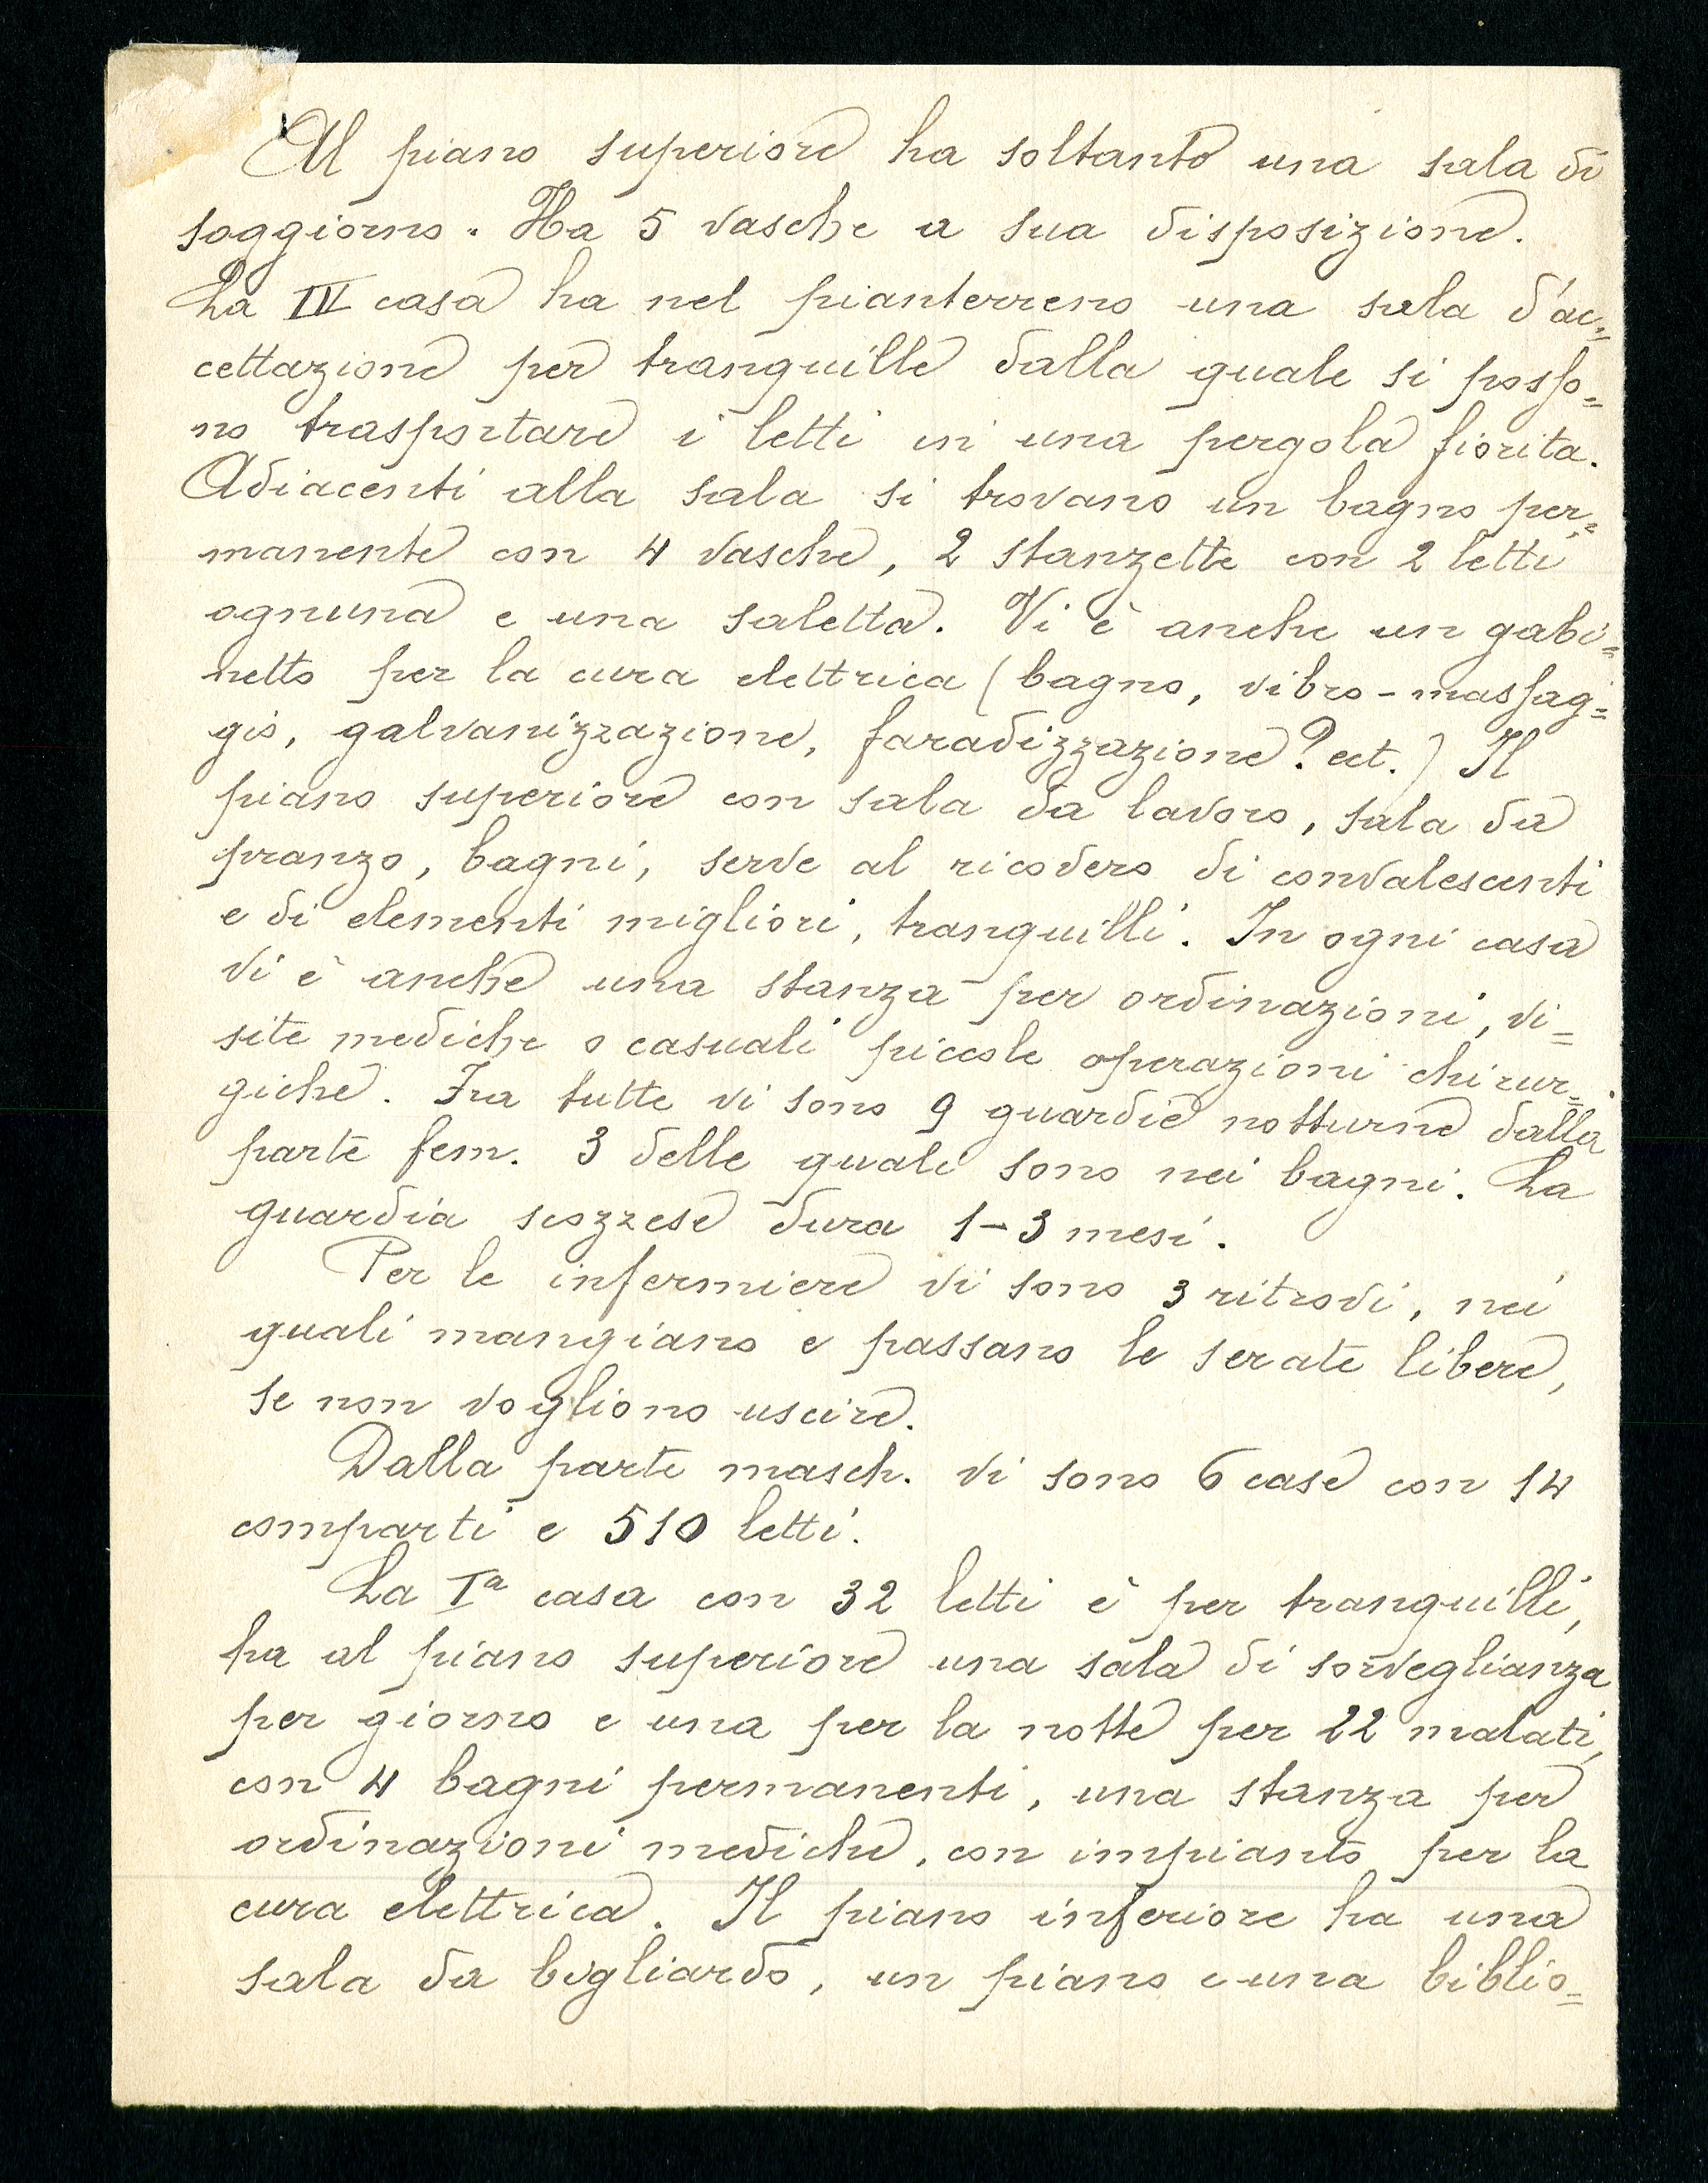 Al piano superiore ha soltanto una sala di
soggiorno. Ha 5 vasche a sua disposizione.
La IV casa ha nel pianterreno una sala d'ac=
cettazione per tranquille dalla quale si posso=
no trasportare i letti in una pergola fiorita.
Adiacenti alla sala si trovano un bagno per=
manente con 4 vasche, 2 stanzette con 2 letti
ognuna e una saletta. Vi è anche un gabi=
netto per la cura elettrica (bagno, vibro-massag=
gio, galvanizzazione, faradizzazione? ect.) Il
piano superiore con sala da lavoro, sala da
pranzo, bagni, serve al ricovero di convalescenti
e di elementi migliori, tranquilli. In ogni casa
vi è anche una stanza per ordinazioni, vi=
site mediche o casuali piccole operazioni chirur=
giche. Fra tutte vi sono 9 guardie notturne dalla
parte fem. 3 delle quali sono nei bagni. La
guardia scozzese dura 1-3 mesi.
Per le infermiere vi sono 3 ritrovi, nei
quali mangiano e passano le serate libere,
se non vogliono uscire.
Dalla parte masch. vi sono 6 case con 14
comparti e 510 letti.
La Iª casa con 32 letti è per tranquilli,
ha al piano superiore una sala di sorveglianza
per giorno e una per la notte per 22 malati,
con 4 bagni permanenti, una stanza per
ordinazioni mediche, con impianto per la
cura elettrica. Il piano inferiore ha una
sala da bigliardo, un piano e una biblio=